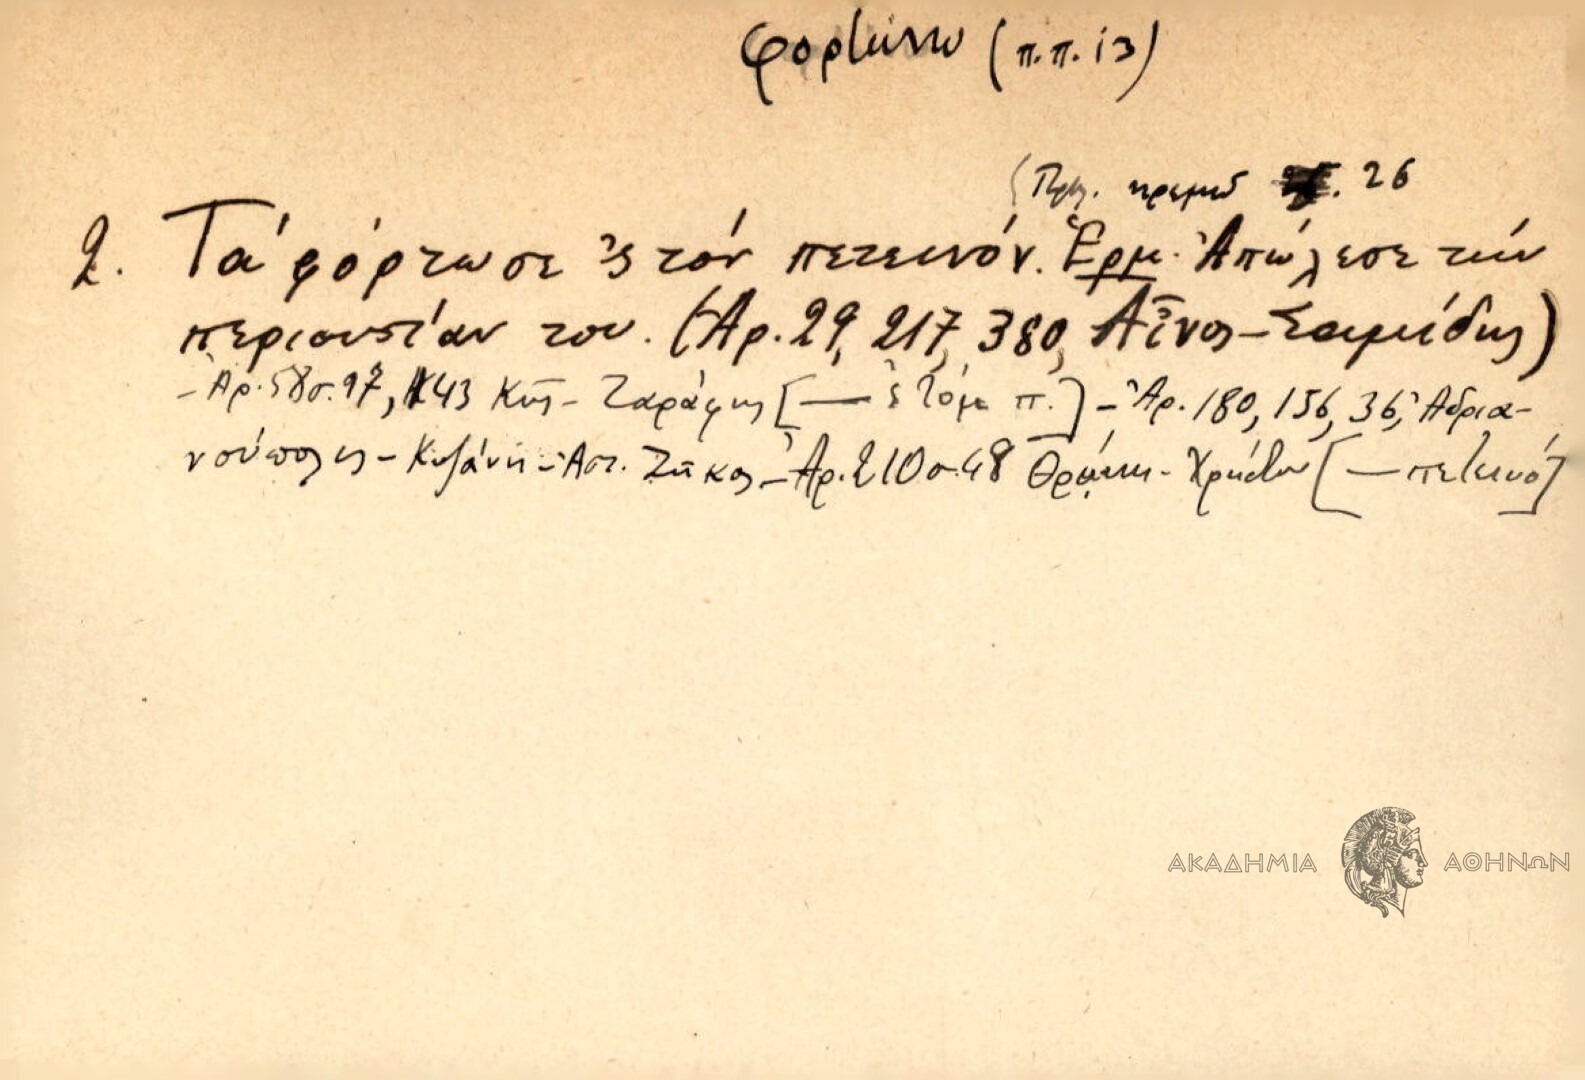 φορτώνω (π.π. 13)
(Πρβ. κρεμώ . 26
2. Τά φόρτωσε 'ς τόν πετεινόν. Ἑρμ. Ἀπώλεσε τήν
περιουσίαν του. (Ἀρ. 29, 217, 380, Αἶνος - Σαμίδης)
- Ἀρ. 58 σ. 97, 143 Κῶς - Ζαράφτης [— 'ς τόμ π.] - Ἀρ. 180, 156, 36, Ἀδρια-
νούπολις - Κοζάνη - Ἀστ. Ζῆκος - Ἀρ. 210 σ. 48 Θράκη - Χρήστου [— πετεινό]
ΑΚΑΔΗΜΙΑ ΑΘΗΝΩΝ